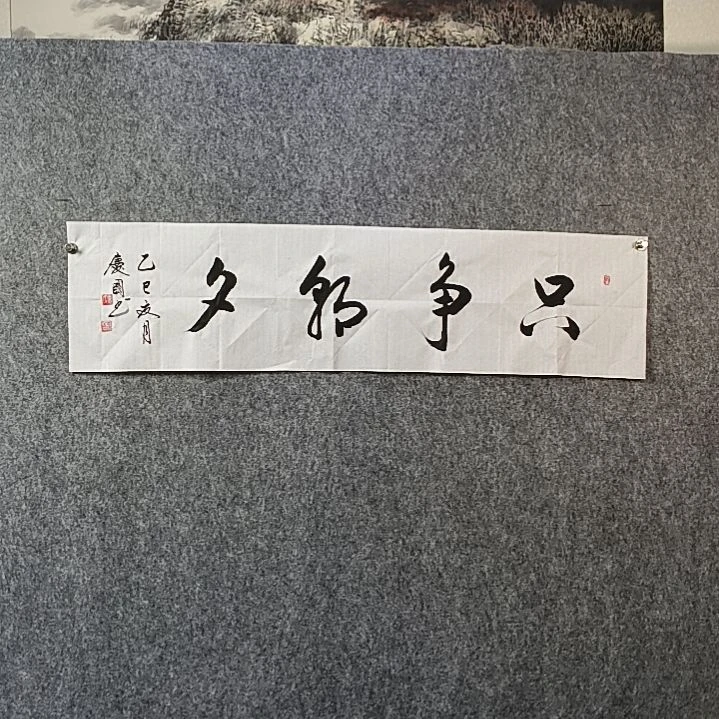 只争朝夕
乙巳夏月
慶國书